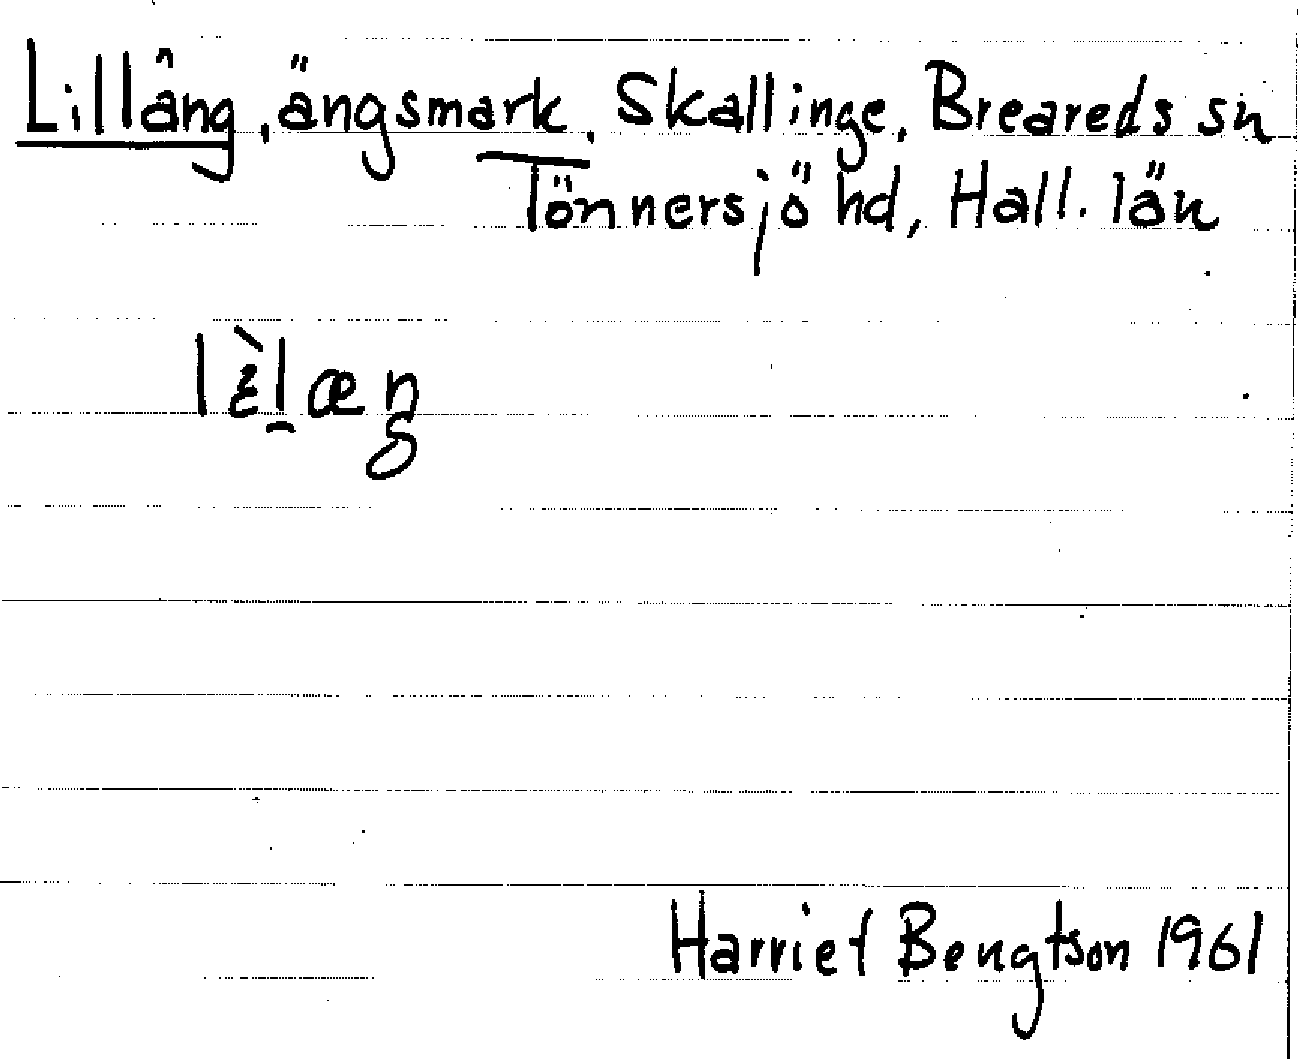 Lilläng, ängsmark, Skallinge, Breareds sn
Tönnersjö hd, Hall. län
lɛ̀l̯æŋ
Harriet Bengtson 1961